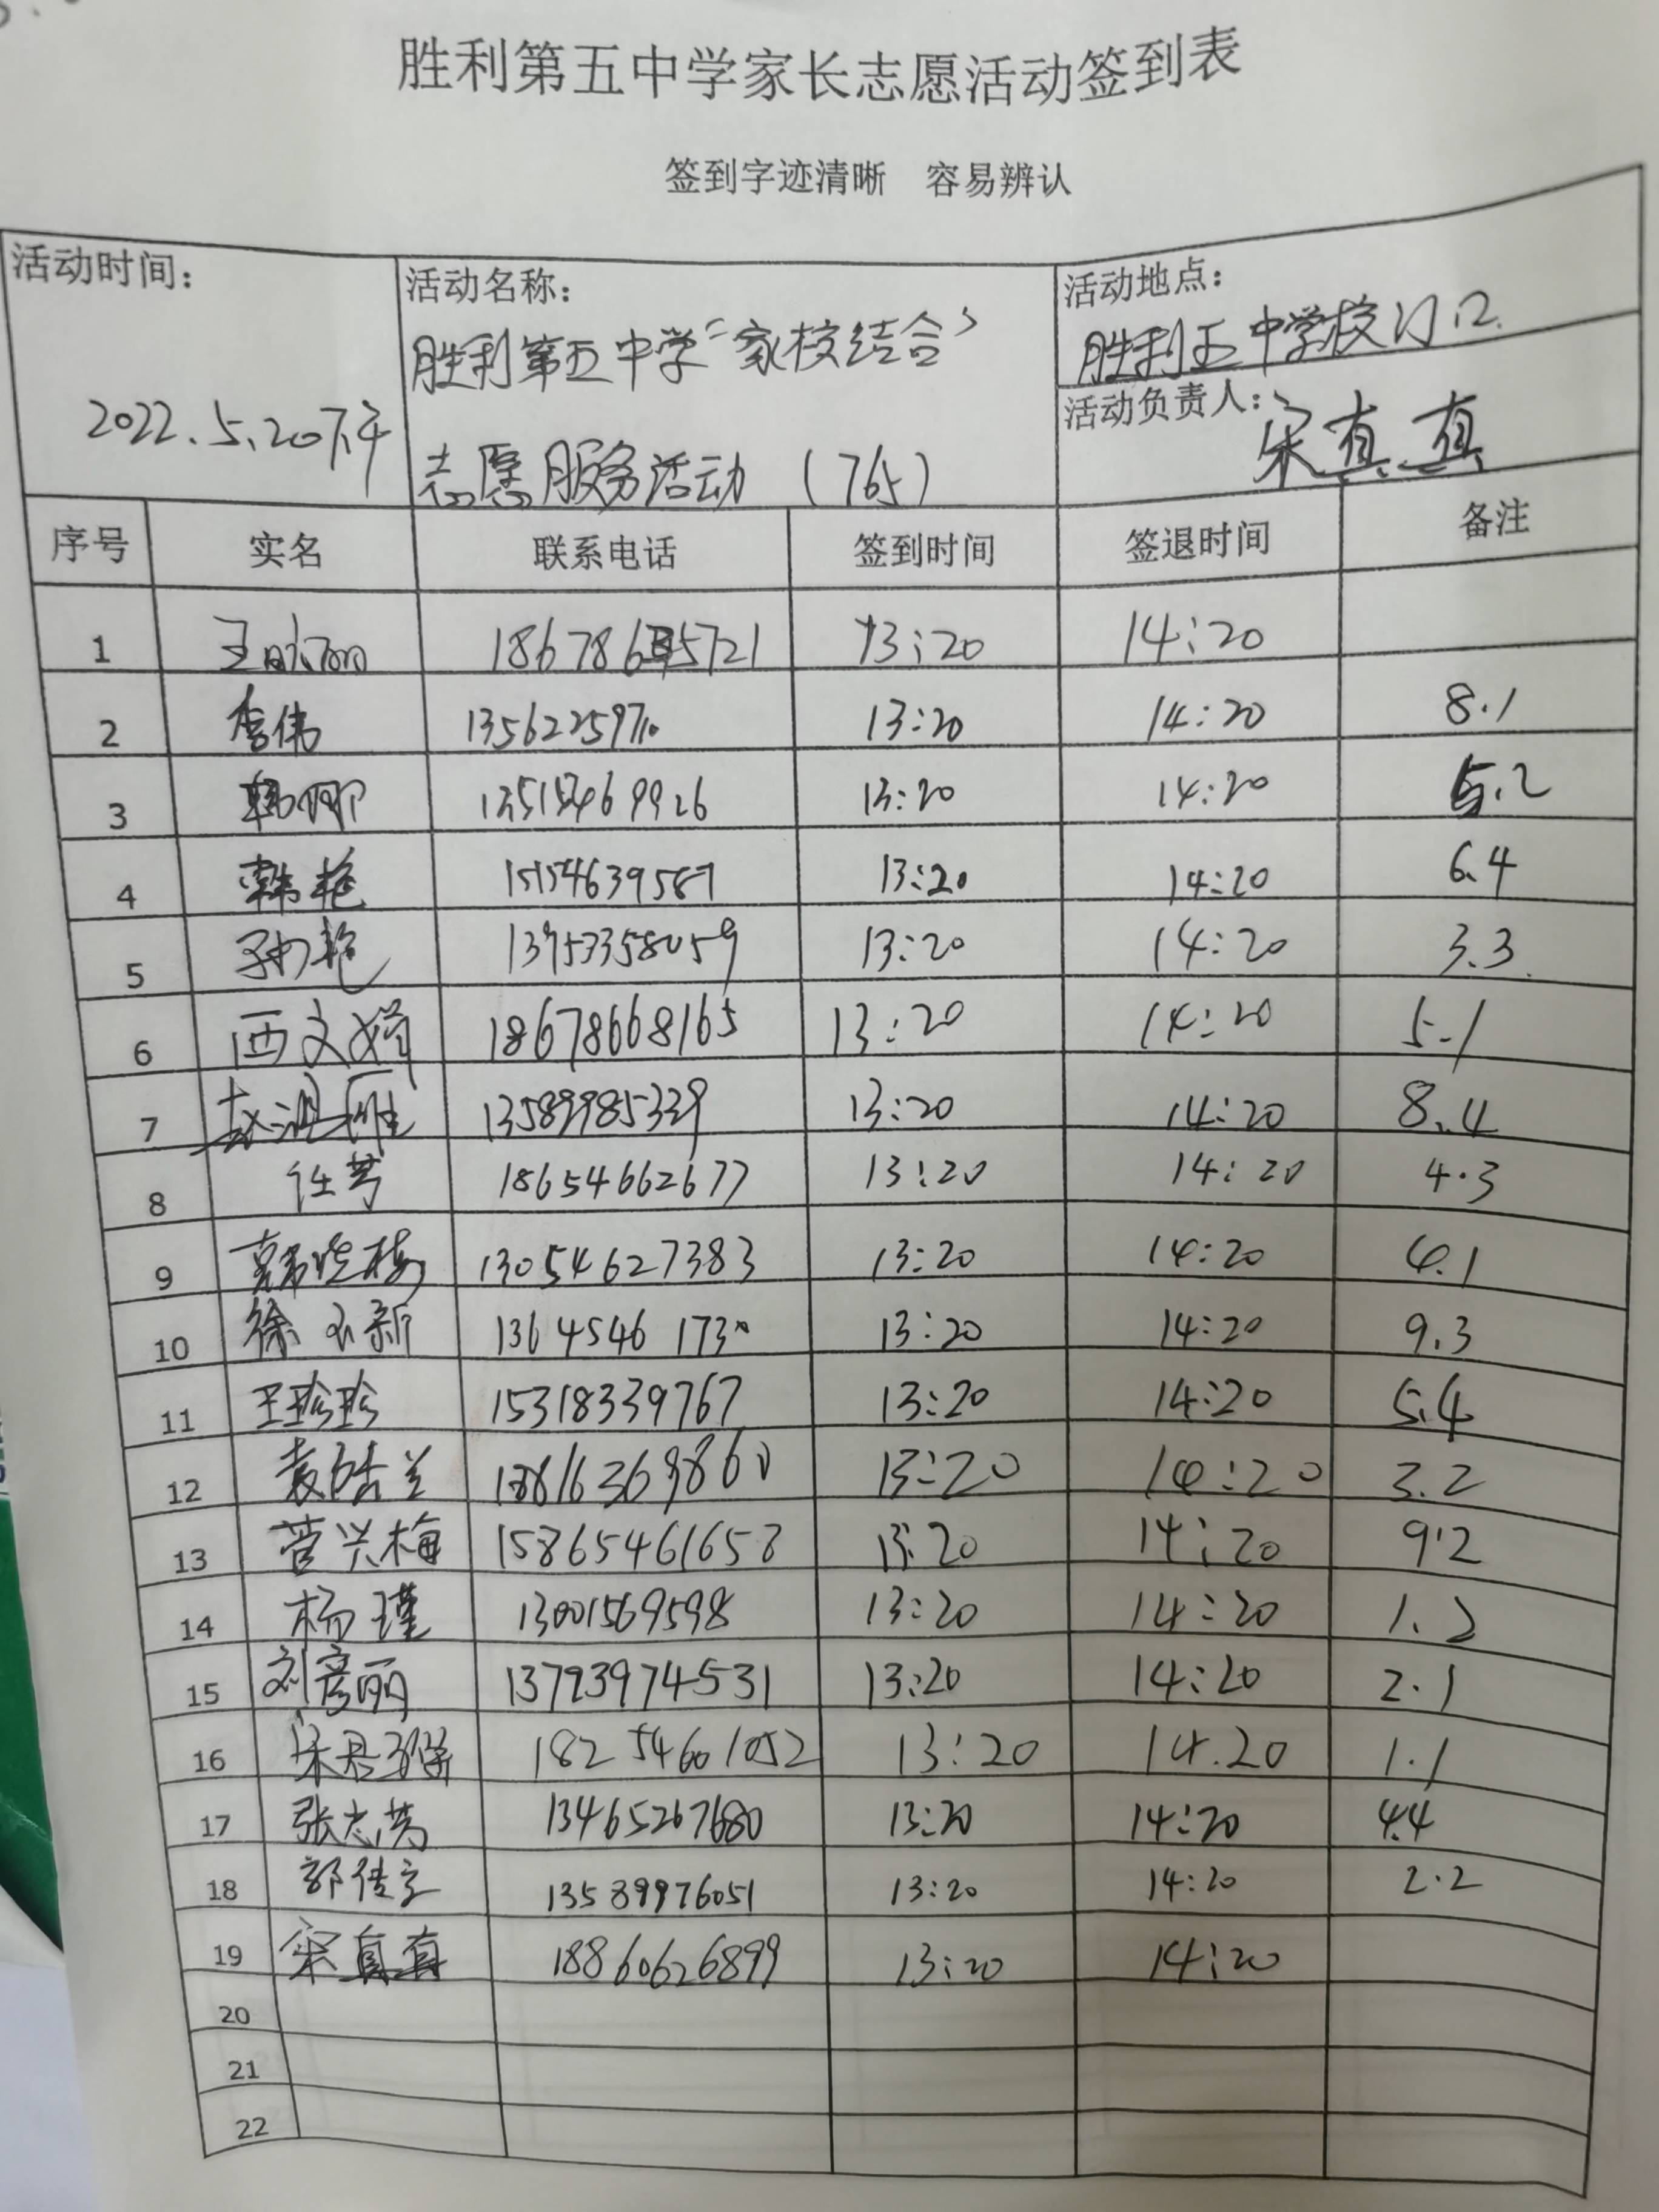 胜利第五中学家长志愿活动签到表
签到字迹清晰 容易辨认
活动时间: 2022.5.20下午
活动名称: 胜利第五中学“家校结合”
志愿服务活动 (765)
活动地点: 胜利五中学校门口
活动负责人: 宋真真
序号 实名 联系电话 签到时间 签退时间 备注
1 13:20 14:20
2 李伟 13:20 14:20 8.1
3 韩娜 13:20 14:20 5.2
4 韩艳 15154639587 13:20 14:20 6.4
5 孙艳 13953358059 13:20 14:20 3.3
6 西文娟 18678668165 13:20 14:20 5.1
7 13589985339 13:20 14:20 8.4
8 任芳 18654662677 13:20 14:20 4.3
9 13054627383 13:20 14:20 4.1
10 徐玉新 13645461730 13:20 14:20 9.3
11 王珍珍 15318339767 13:20 14:20 5.4
12 13:20 14:20 3.2
13 菅兴梅 15865461658 13:20 14:20 9.2
14 杨瑾 13001569598 13:20 14:20 1.2
15 刘彦丽 13793974531 13:20 14:20 2.1
16 18254601052 13:20 14.20 1.1
17 张志英 13465267680 13:20 14:20 4.4
18 13589976051 13:20 14:20 2.2
19 宋真真 18860626899 13:20 14:20
20
21
22